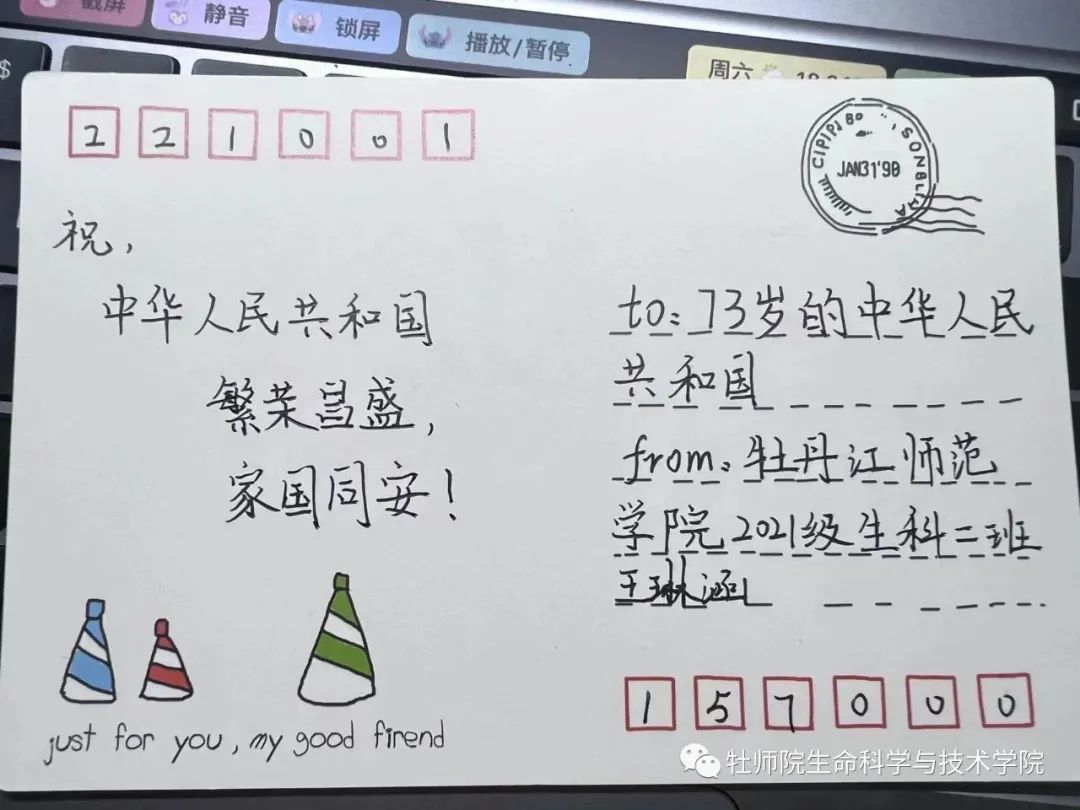 截屏
静音
锁屏
播放/暂停
周六
221001
JAN31'90
祝,
中华人民共和国
繁荣昌盛,
家国同安!
to:73岁的中华人民
共和国
from:牡丹江师范
学院2021级生科二班
王琳涵
just for you, my good firend
157000
牡师院生命科学与技术学院